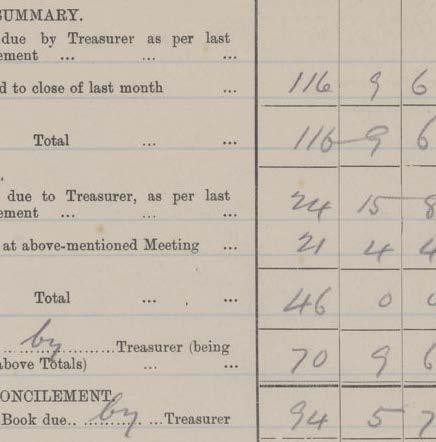 SUMMARY.
due by Treasurer as per last
ement ... ... ...
d to close of last month ... 116 9 6
Total ... ... 116 9 6
due to Treasurer, as per last
ement ... ... ... 24 15 8
at above-mentioned Meeting ... 21 4 4
Total ... ... 46 0 0
by Treasurer (being
above Totals) ... ... 70 9 6
ONCILEMENT.
Book due by Treasurer 94 5 7